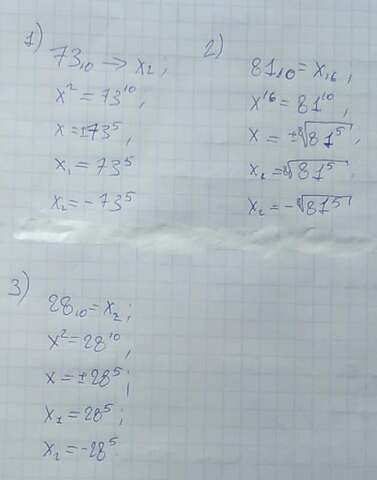 1)
73₁₀ → x₂;
x² = 73¹⁰,
x = ±73⁵,
x₁ = 73⁵
x₂ = -73⁵
2)
81₁₀ = x₁₆,
x¹⁶ = 81¹⁰,
x = ±⁸√81⁵,
x₂ = ⁸√81⁵,
x₂ = -⁸√81⁵
3)
28₁₀ = x₂;
x² = 28¹⁰,
x = ±28⁵;
x₁ = 28⁵;
x₂ = -28⁵